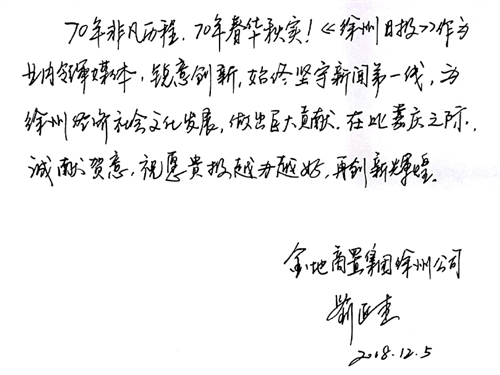 70年非凡历程，70年春华秋实！《徐州日报》作为
业内领军媒体，锐意创新，始终坚守新闻第一线，为
徐州经济社会文化发展，做出巨大贡献。在此喜庆之际，
诚献贺意，祝愿贵报越办越好，再创新辉煌。
金地商置集团徐州公司
2018.12.5